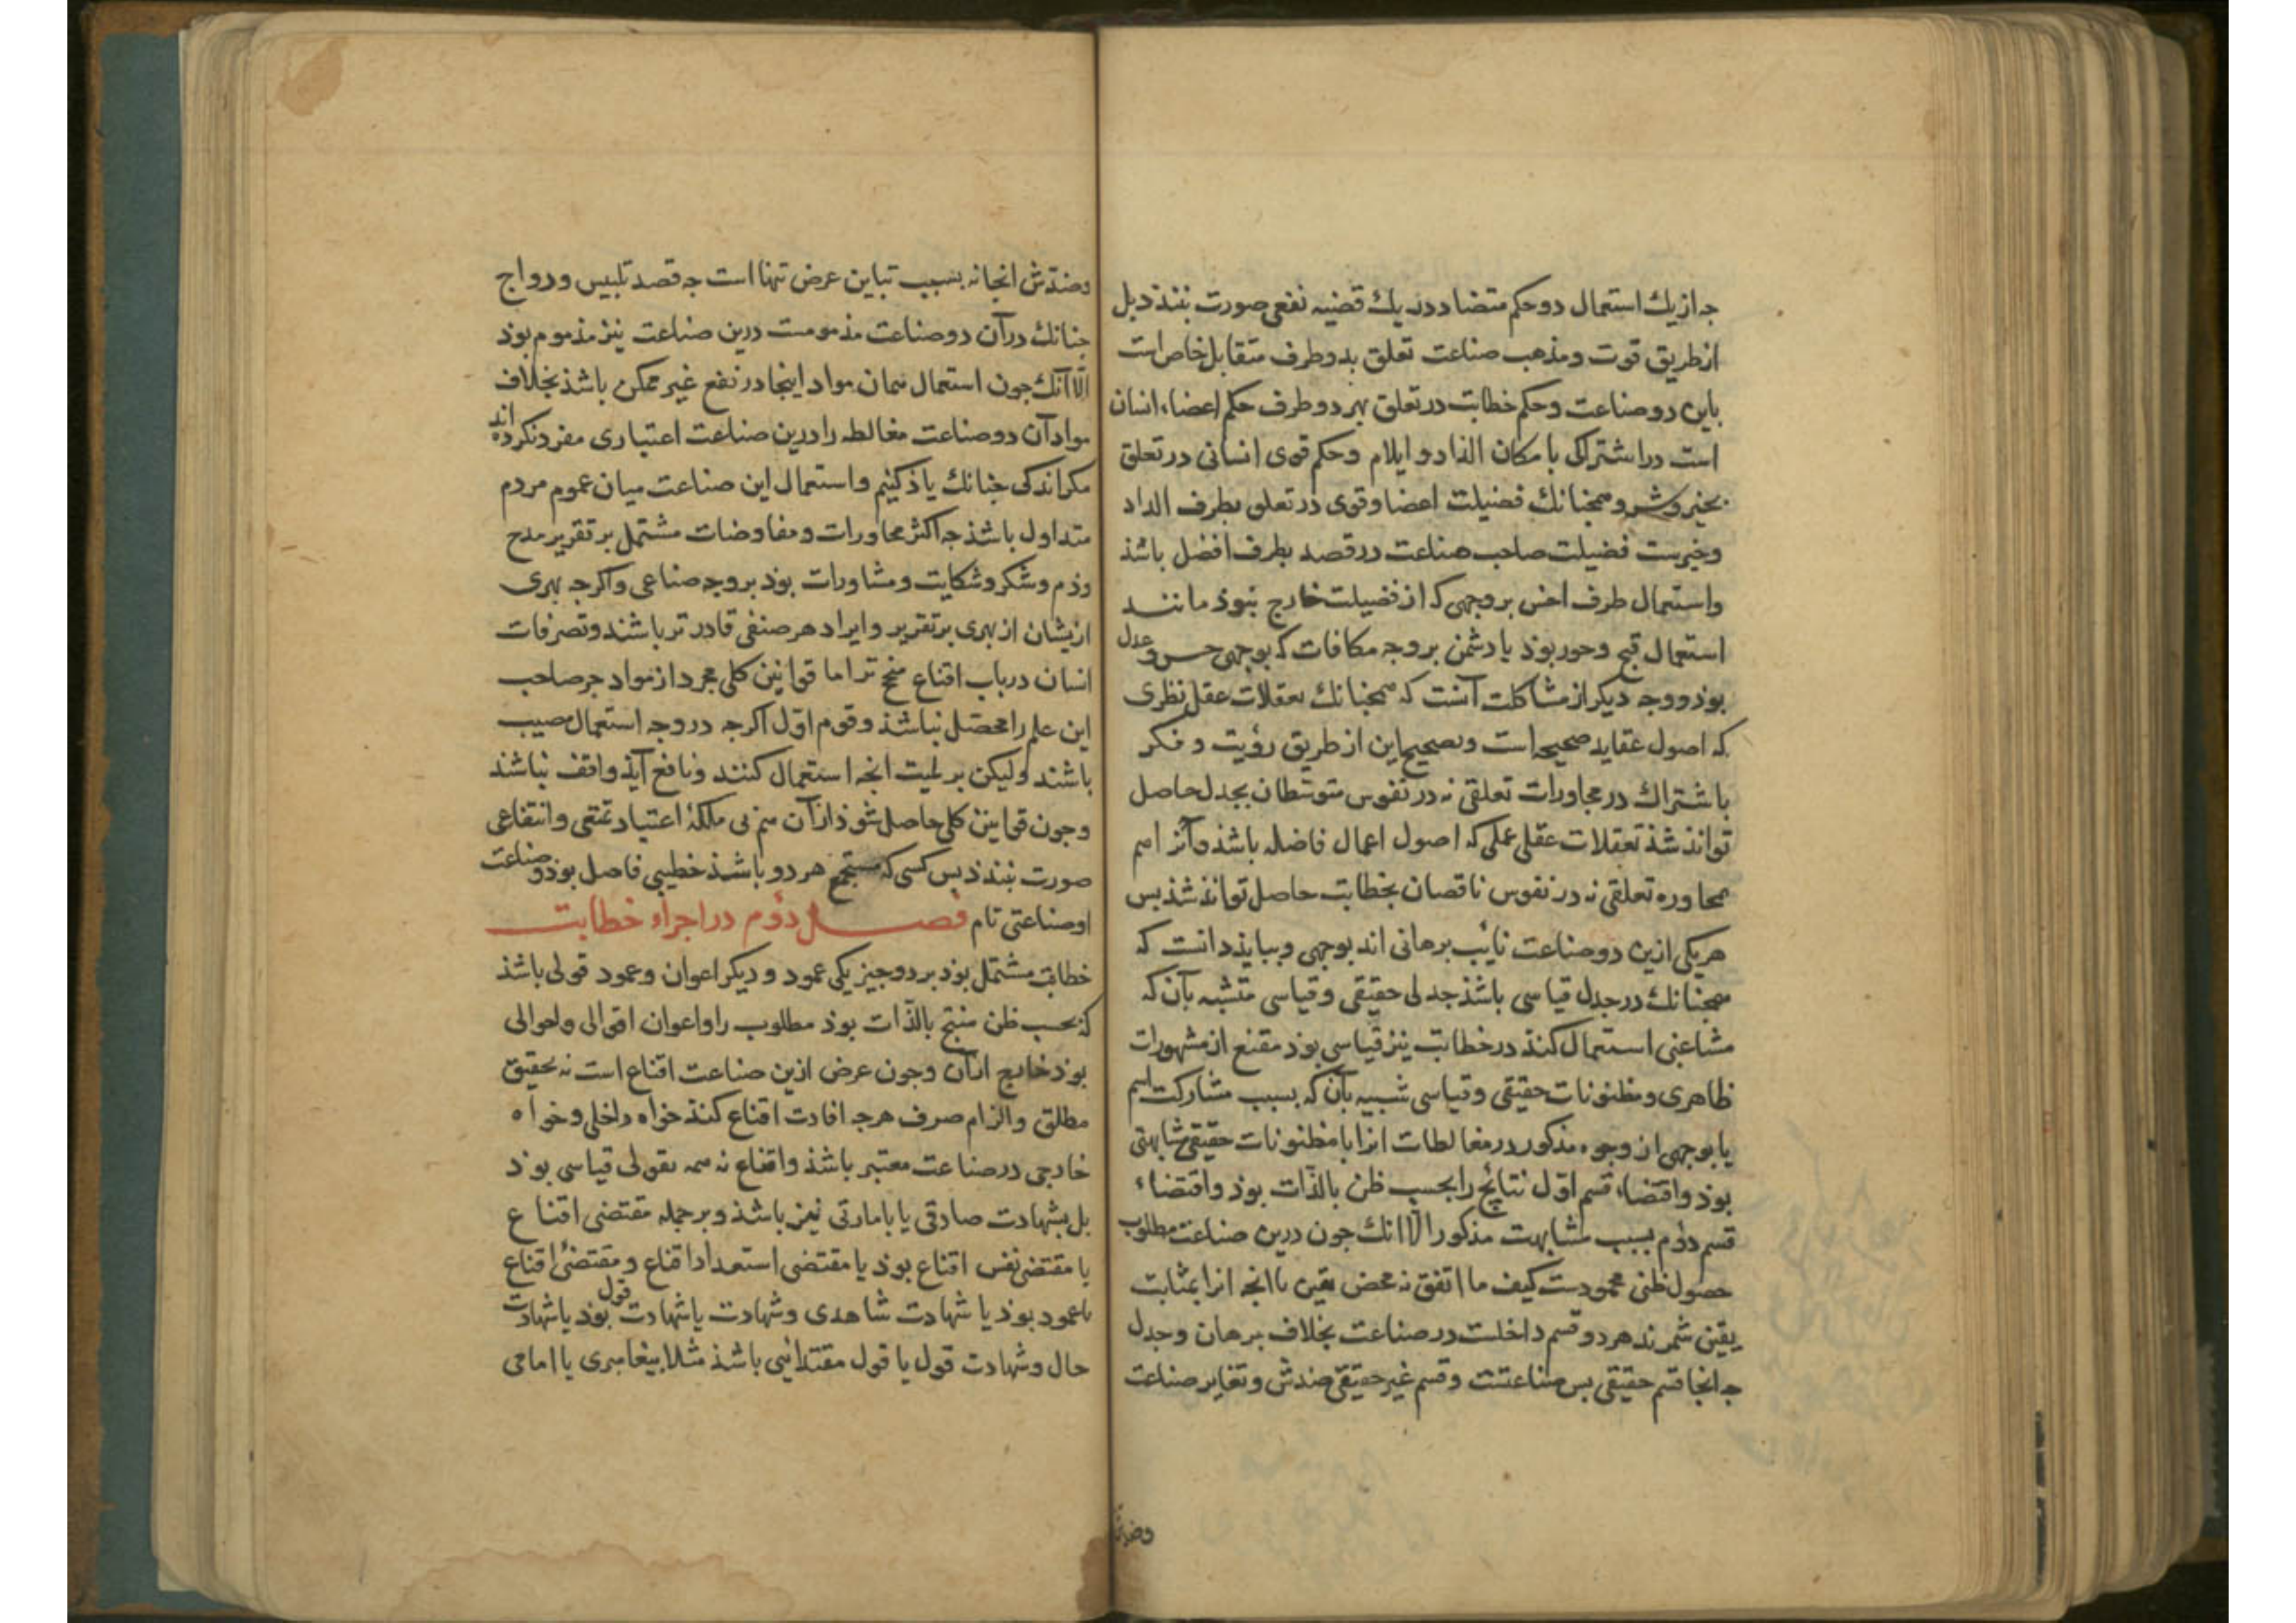 جه از يك استعمال دو حكم متضاد در يك قضيه نفعى صورت نبندد بل
از طريق قوت و مذهب صناعت تعلق بدو طرف متقابل خاص است
باين دو صناعت و حكم خطابت در تعلق بهر دو طرف حكم اعضاء انسان
است در اشتراك بامكان الذاذ و ايلام و حكم قوى انسانى در تعلق
بخير و شر و همجنانك فضيلت اعضا و قوى در تعلق بطرف الذاذ
و خيريت فضيلت صاحب صناعت در قصد بطرف افضل باشذ
و استعمال طرف اخس بر وجهى كه از فضيلت خارج نبوذ مانند
استعمال قبح و جور بوذ با دشمن بر وجه مكافات كه بوجهى حسن و عدل
بوذ و وجه ديكر از مشاكلت آنست كه همجنانك تعقلات عقل نظرى
كه اصول عقايد صحيحه است و تصحيح اين از طريق رؤيت و فكر
باشتراك در مجاورات تعلقى نه در نفوس متوسطان بجدل حاصل
تواند شذ تعقلات عقل عملى كه اصول اعمال فاضله باشذ و آنرا سم
محاوره تعلقى نه در نفوس ناقصان بخطابت حاصل تواند شذ بس
هر يكى ازين دو صناعت نائب برهانى اند بوجهى و ببايذ دانست كه
همجنانك در جدل قياسى باشذ جدلى حقيقى و قياسى متشبه بآن كه
مشاغبى استعمال كند در خطابت نيز قياسى بوذ مقنع از مشهورات
ظاهرى و مظنونات حقيقى و قياسى شبيه بآن كه بسبب مشاركت اسم
يا بوجهى از وجوه مذكور در مغالطات انرا با مظنونات حقيقى مشابهتى
بوذ و اقتضاء قسم اوّل نتائج را بحسب ظن بالذّات بوذ و اقتضاء
قسم دوم بسبب مشابهت مذكور الّا انك جون درين صناعت مطلوب
حصول ظنى محمودست كيف ما اتفق نه محض يقين يا انجه انرا بمثابت
يقين شمرند هر دو قسم داخلست در صناعت بخلاف برهان و جدل
جه انجا قسم حقيقى بس صناعتست و قسم غير حقيقى ضدش و تغاير صناعت
وضدش
وضدش انجا نه بسبب تباين عرض تنها است جه قصد تلبيس و رواج
جنانك در آن دو صناعت مذمومست درين صناعت نيز مذموم بوذ
الّا آنك جون استعمال همان مواد اينجا در نفع غير ممكن باشذ بخلاف
مواد آن دو صناعت مغالطه را درين صناعت اعتبارى مفرد نكرده اند
مكر اندكى جنانك ياذ كنيم و استعمال اين صناعت ميان عموم مردم
متداول باشذ جه اكثر محاورات و مفاوضات مشتمل بر تقرير مدح
و ذم و شكر و شكايت و مشاورات بوذ بر وجه صناعى و اكرجه بهرى
ازيشان از بهرى بر تقرير و ايراد هر صنفى قادرتر باشند و تصرفات
انسان در باب اقناع منجح تر اما قوانين كلى مجرد از مواد جز صاحب
اين علم را محصّل نباشذ و قوم اوّل اكرجه در وجه استعمال مصيب
باشند و ليكن بر لميت انجه استعمال كنند و نافع آيذ واقف نباشند
و جون قوانين كلى حاصل شوذ از آن هم بى ملكۀ اعتياد تمتعى و انتفاعى
صورت نبندد بس كسى كه مستجمع هر دو باشذ خطيبى فاضل بوذ و صناعت
او صناعتى تام فصل دوم در اجزاء خطابت
خطابت مشتمل بوذ بر دو جيز يكى عمود و ديكر اعوان و عمود قولى باشذ
كه بحسب ظن منتج بالذّات بوذ مطلوب را و اعوان اقوالى و احوالى
بوذ خارج از آن و جون عرض ازين صناعت اقناع است نه تحقيق
مطلق و الزام صرف هرجه افادت اقناع كند خواه داخلى و خواه
خارجى در صناعت معتبر باشذ و اقناع نه همه بقولى قياسى بوذ
بل بشهادت صادقى يا بامارتى نيز باشذ و بر جمله مقتضى اقناع
يا مقتضى نفس اقناع بوذ يا مقتضى استعداد اقناع و مقتضى اقناع
يا عمود بوذ يا شهادت شاهدى و شهادت يا شهادت قول بوذ يا شهادت
حال و شهادت قول يا قول مقتدائى باشذ مثلا بيغامبرى يا امامى